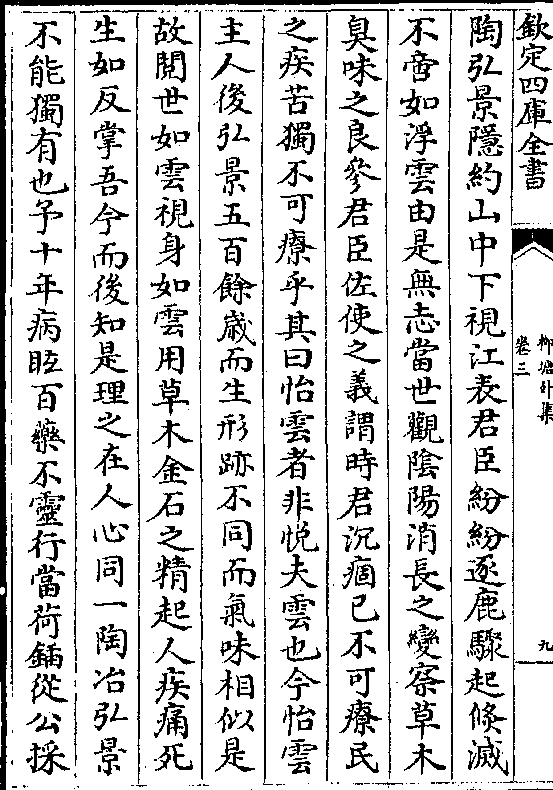 欽定四庫全書
柳塘外集
卷三
九
陶弘景隱約山中下視江表君臣紛紛逐鹿驟起倐滅
不啻如浮雲由是無志當世觀陰陽消長之變察草木
臭味之良參君臣佐使之義謂時君沉痼已不可療民
之疾苦獨不可療乎其曰怡雲者非悦夫雲也今怡雲
主人後弘景五百餘歳而生形跡不同而氣味相似是
故閱世如雲視身如雲用草木金石之精起人疾痛死
生如反掌吾今而後知是理之在人心同一陶冶弘景
不能獨有也予十年病眩百藥不靈行當荷鍤從公採